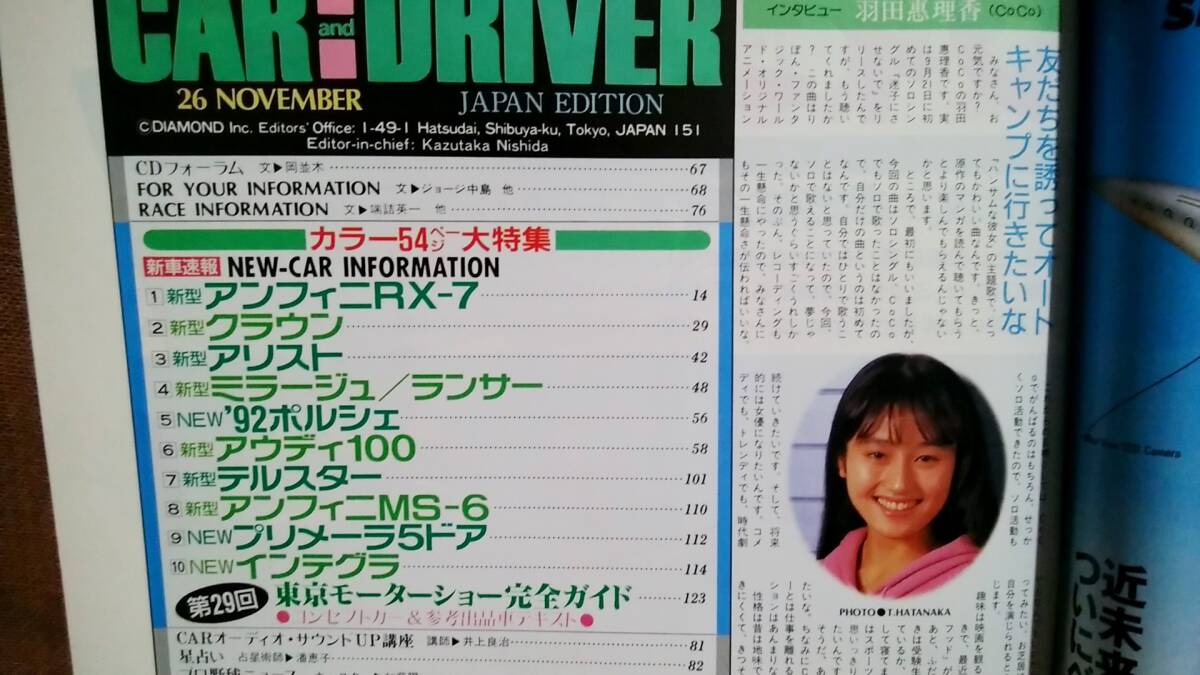 CAR and DRIVER
26 NOVEMBER JAPAN EDITION
©DIAMOND Inc. Editors' Office: 1-49-1 Hatsudai, Shibuya-ku, Tokyo, JAPAN 151
Editor-in-chief: Kazutaka Nishida
CDフォーラム 文▶岡並木 67
FOR YOUR INFORMATION 文▶ジョージ中島 他 68
RACE INFORMATION 文▶端詰英一 他 76
カラー54ページ大特集
新車速報 NEW-CAR INFORMATION
1 新型アンフィニRX-7 14
2 新型クラウン 29
3 新型アリスト 42
4 新型ミラージュ/ランサー 48
5 NEW '92ポルシェ 56
6 新型アウディ100 58
7 新型テルスター 101
8 新型アンフィニMS-6 110
9 NEWプリメーラ5ドア 112
10 NEWインテグラ 114
第29回 東京モーターショー完全ガイド 123
●コンセプトカー&参考出品車テキスト●
CARオーディオ・サウンドUP講座 講師▶井上良治 81
星占い 占星術師▶潘恵子 82
インタビュー 羽田惠理香(CoCo)
友だちを誘ってオート
キャンプに行きたいな
みなさん、お
元気ですか?
CoCoの羽田
惠理香です。実
は9月21日に初
めてのソロシン
グル『迷子にさ
せないで』をリ
リースしたんで
すが、もう聴い
てくれましたか
? この曲はり
ぼん・ファンタ
ジック・ワール
ド・オリジナル
アニメーション
『ハンサムな彼女』の主題歌で、とっ
てもかわいい曲なんです。きっと、
原作のマンガを読んで聴いてもらう
とより楽しんでもらえるんじゃない
かと思います。
ところで、最初にもいいましたが、
今回の曲はソロシングル。CoCo
でもソロで歌ったことはなかったの
で、自分だけの曲というのは初めて
なんです。自分ではひとりで歌うこ
とはないと思っていたので、今回、
ソロで歌えることになって、夢じゃ
ないかと思うぐらいすごくうれしか
った。そのぶん、レコーディングも
一生懸命にやったので、みなさんに
もその一生懸命さが伝わればいいな。
oでがんばるのはもちろん、せっか
くソロ活動できたので、ソロ活動も
続けていきたいです。そして、将来
的には女優になりたいんです。コメ
ディでも、トレンディでも、時代劇
PHOTO●T.HATANAKA
趣味は映画を観る
近未来
ついに